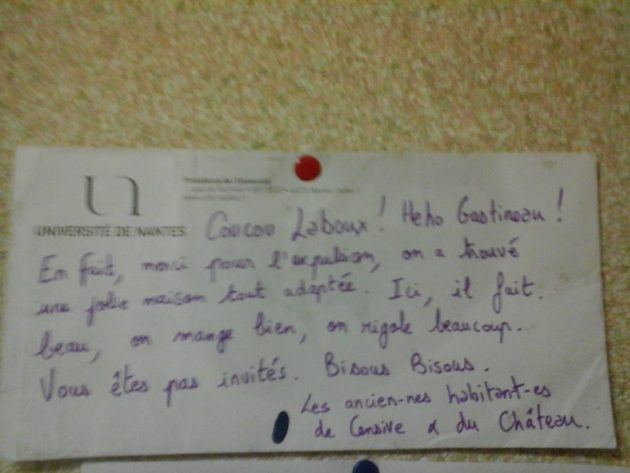 UNIVERSITÉ DE NANTES
Coucou Laboux! Heho Gastineau!
En fait, merci pour l'expulsion, on a trouvé
une jolie maison tout adaptée. Ici, il fait
beau, on mange bien, on rigole beaucoup.
Vous êtes pas invités. Bisous Bisous.
Les ancien-nes habitant-es
de Censive & du Château.